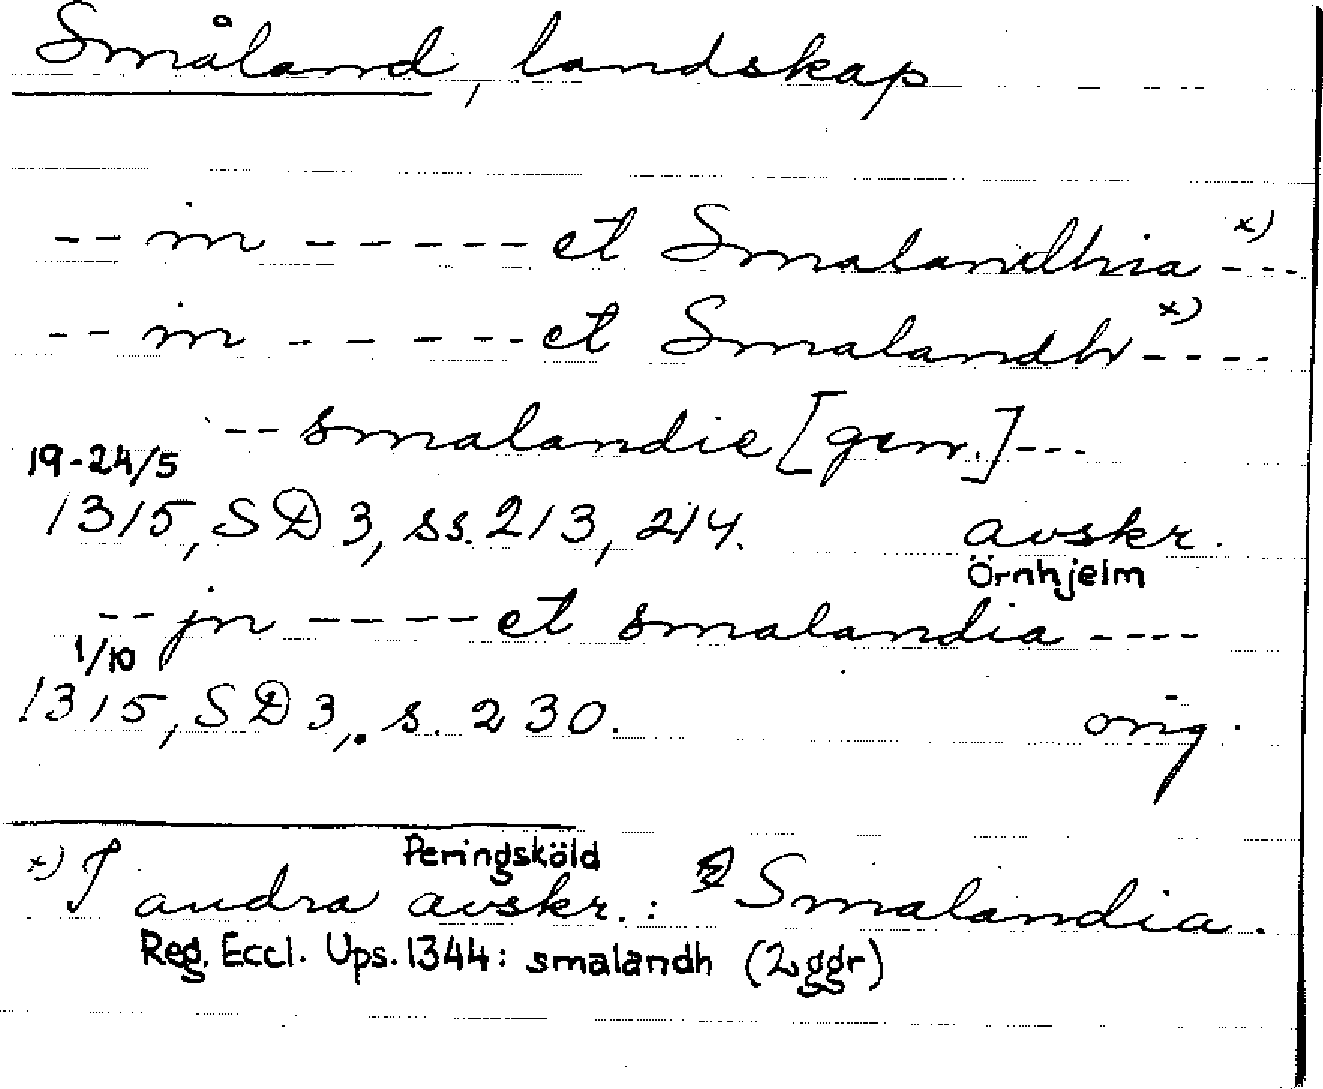 Småland, landskap
-- in ----- et Smalandhia x) ---
-- in ----- et Smalandh x) ----
-- smalandie [gen.] ---
19-24/5
1315, SD 3, ss. 213, 214. avskr.
Örnhjelm
-- jn ---- et smalandia ----
1/10
1315, SD 3, s. 230. orig.
Peringsköld
x) I andra avskr.: Smalandia.
Reg. Eccl. Ups. 1344: smalandh (2 ggr)